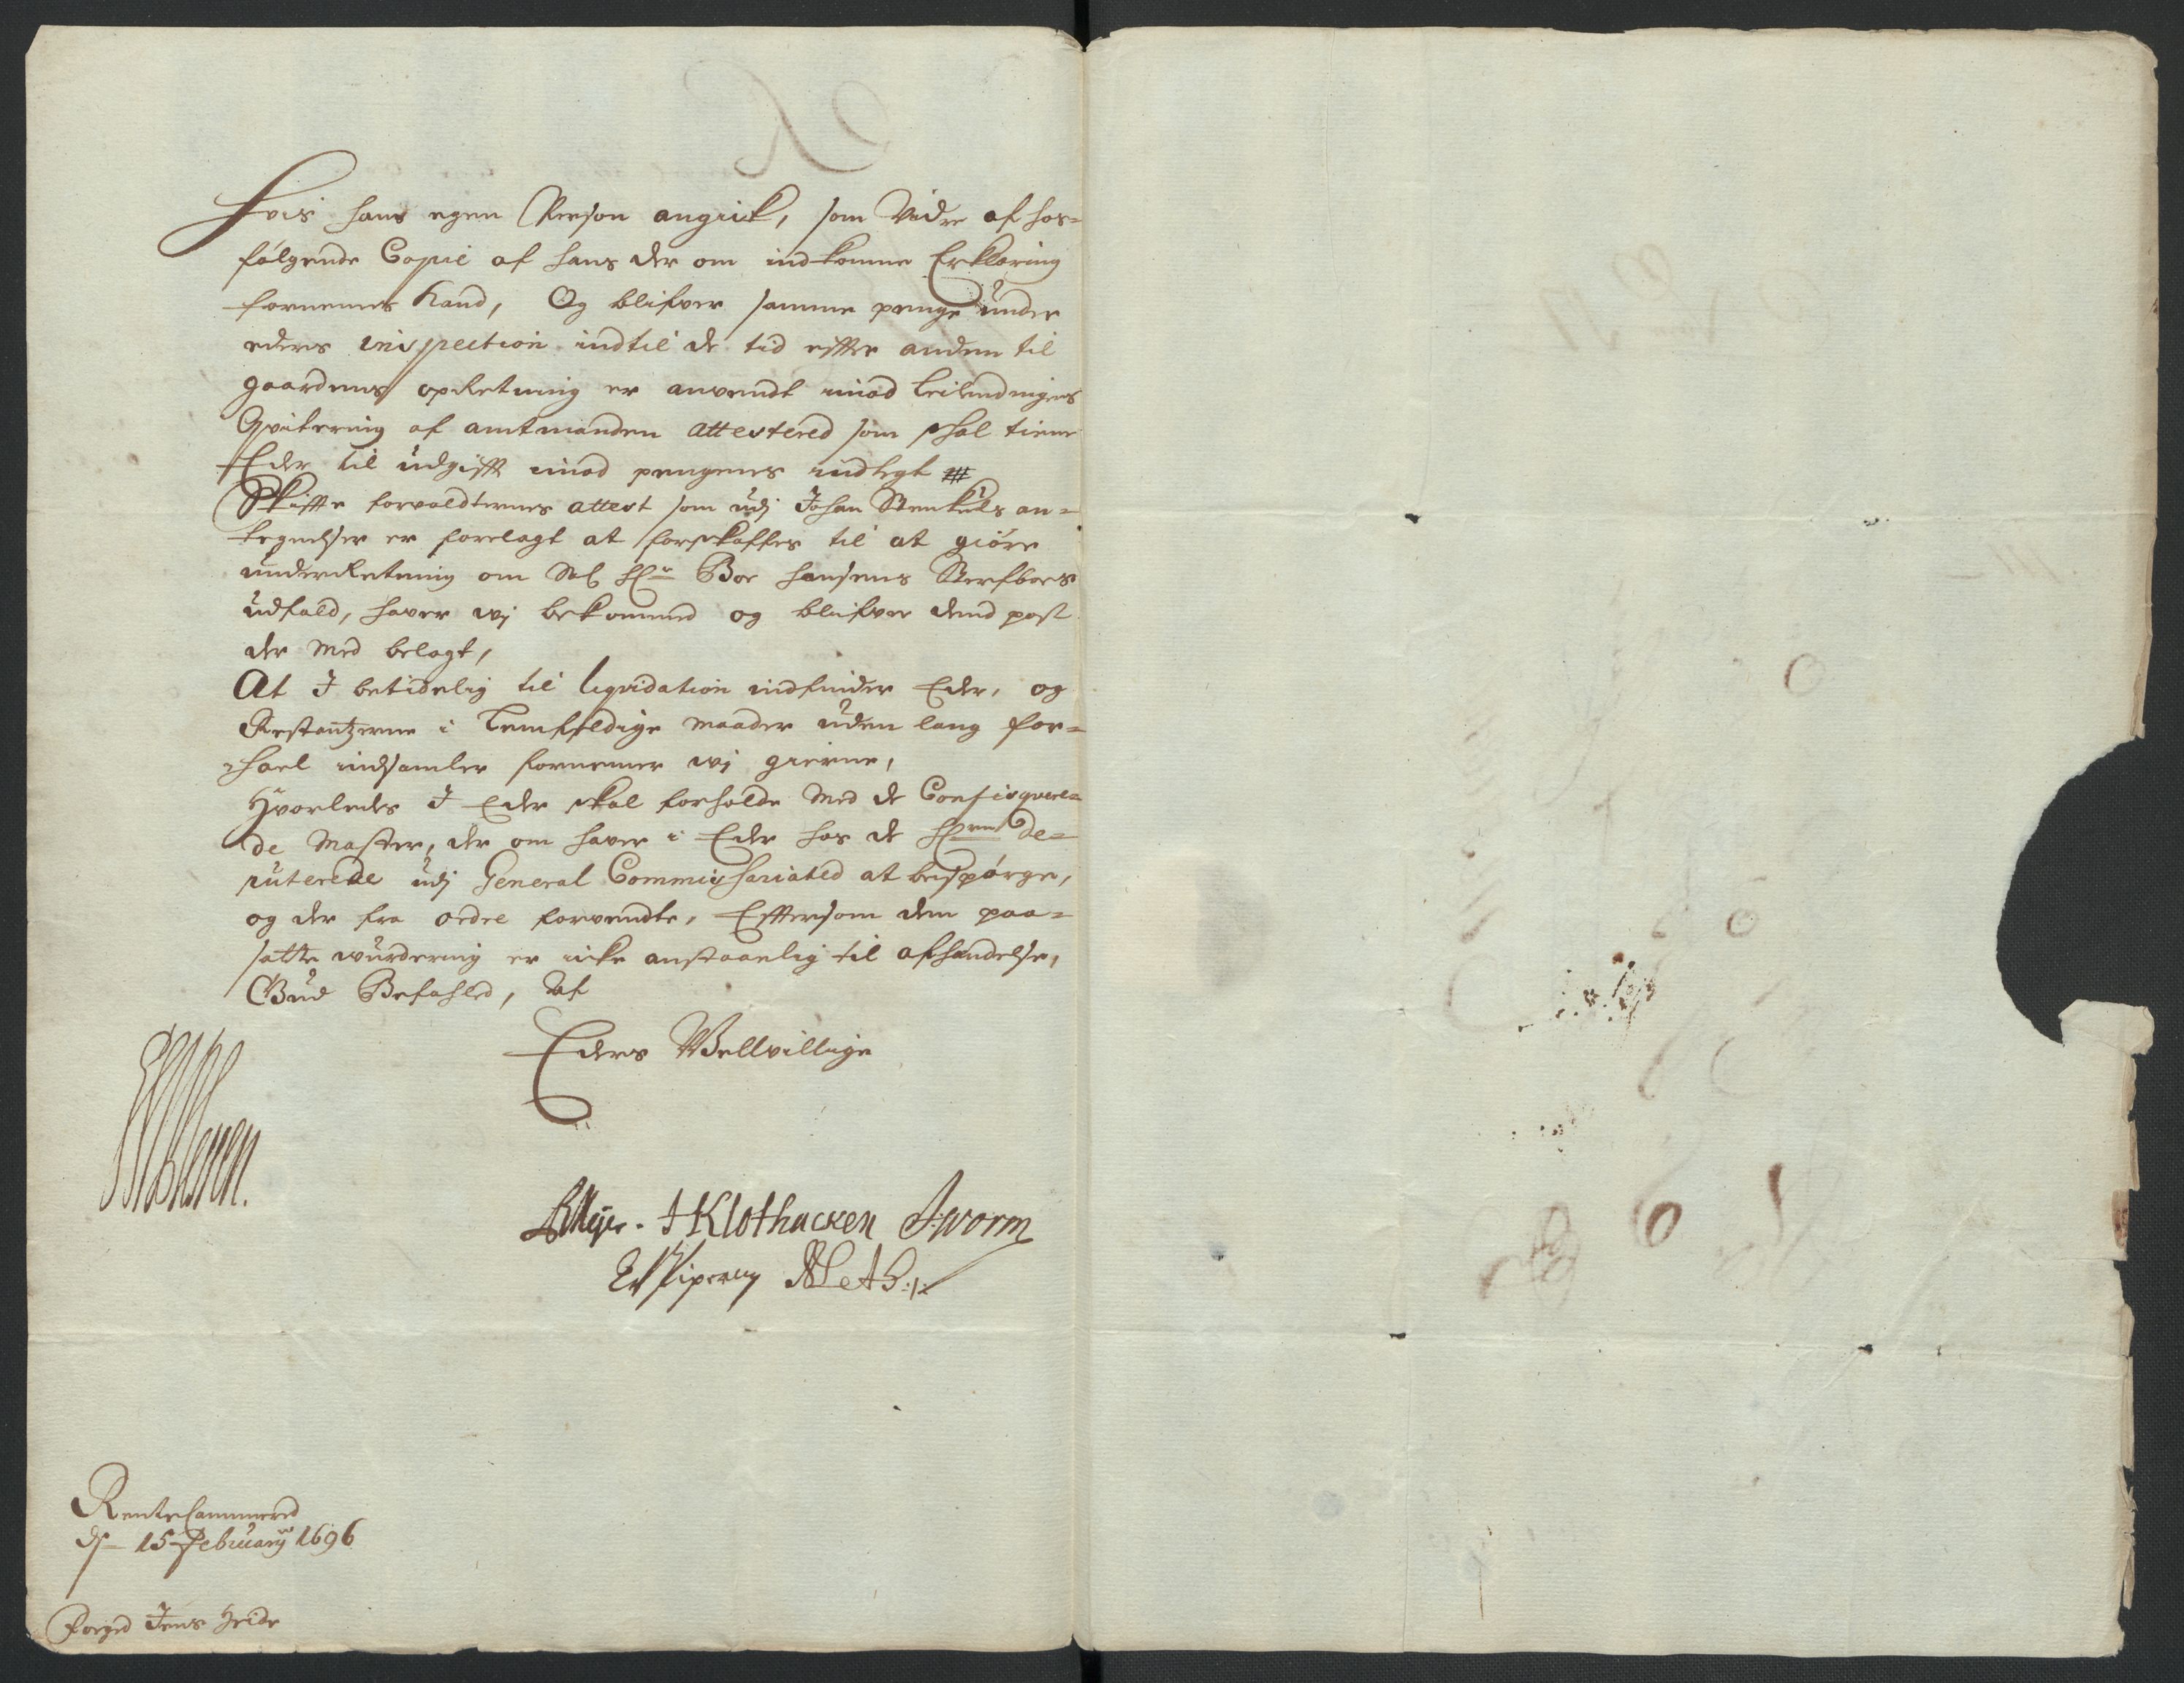 Hvis hans egen Person angick, som Videre af hos-
følgende Copie af hans der om indkomne Erklæring
fornemmes kand, Og blifver samme penge under
eders inspection indtil de tid efter anden til
gaardens opRetning er anvendt imod leilendingens
Qvitering af amtmanden attestered som skal tiene
Eder til udgifft imod pengenes indtegt
Skiffte forvaldternes attest som udj Johan Stenkuls an-
tegnelser er forelagt at forskaffes til at giöre
underRetning om Sal Hr Boe Hansens Sterfboes
udfald, haver wj bekommed og blifver dend post
der med belagt,
At I betidelig til liqvidation indfinder Eder, og
Restantzerne i lemfeldige maader uden lang for-
hael indsamler fornemmer wj gierne,
Hvorledes I Eder skal forholde med de Confisqvere-
de Master, der om haver i Eder hos de Hrrer De-
puterede udj General Commissariated at bespørge,
og der fra ordre forvendte, Efftersom den paa-
satte wurdering er icke anstaaelig til afhandelse,
Gud Befahled, Af
Eders Wellvillige
BMeyer. J Klothacken J Worm
Rentecammered
d 15 Februarij 1696
Jens Heide